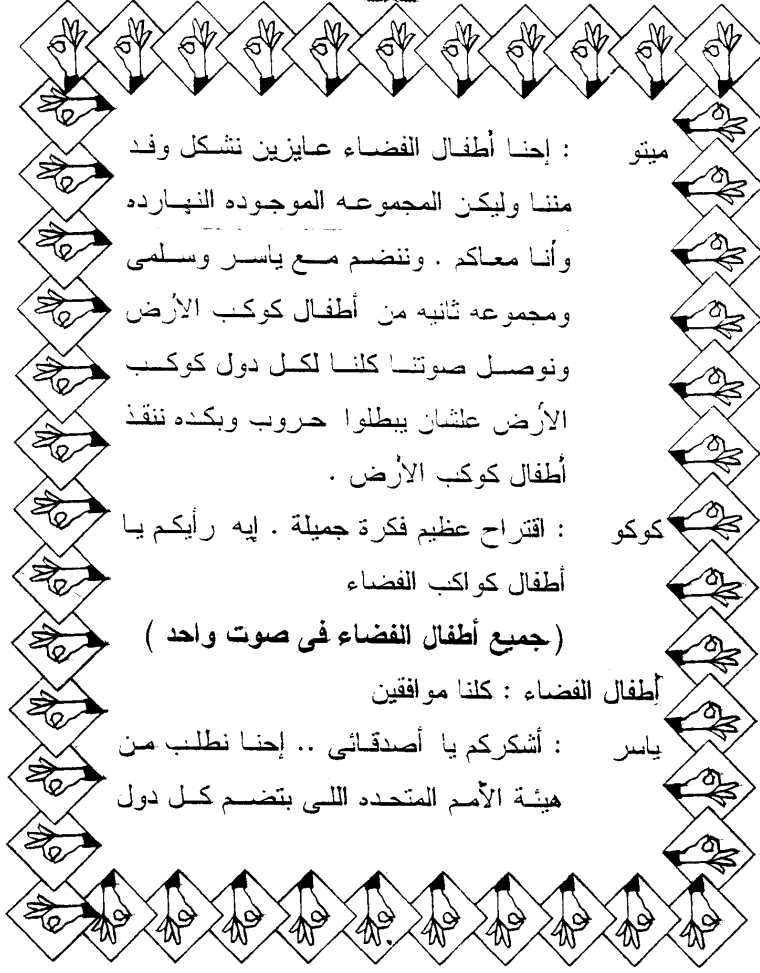 ميتو : إحنا أطفال الفضاء عايزين نشكل وفد
مننا وليكن المجموعه الموجوده النهارده
وأنا معاكم . وننضم مع ياسر وسلمى
ومجموعه ثانيه من أطفال كوكب الأرض
ونوصل صوتنا كلنا لكل دول كوكب
الأرض علشان يبطلوا حروب وبكده ننقذ
أطفال كوكب الأرض .
كوكو : اقتراح عظيم فكرة جميلة . إيه رأيكم يا
أطفال كواكب الفضاء
(جميع أطفال الفضاء فى صوت واحد )
أطفال الفضاء : كلنا موافقين
ياسر : أشكركم يا أصدقائى .. إحنا نطلب من
هيئة الأمم المتحده اللى بتضم كل دول